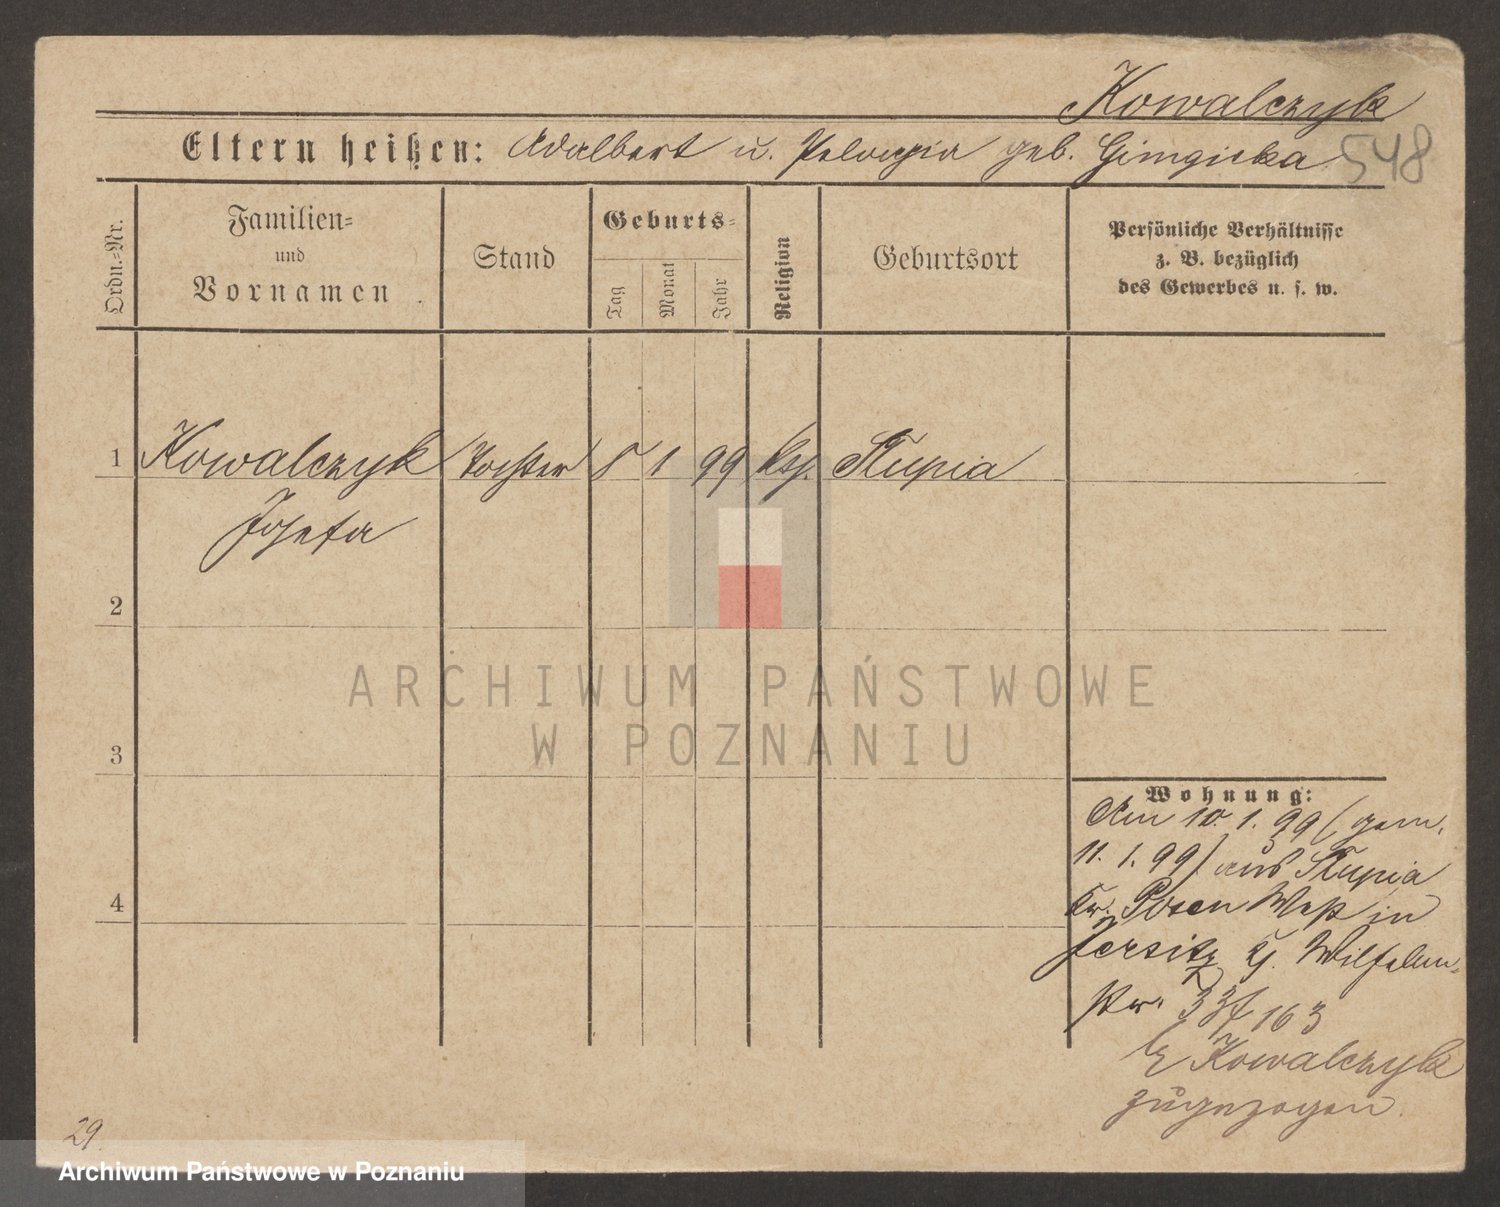 Kowalczyk
Eltern heißen: Adalbert u. Pelagia geb. Gimzicka 548
Ordn.-Nr.
Familien-
und
Vornamen
Stand
Geburts-
Tag
Monat
Jahr
Religion
Geburtsort
Persönliche Verhältnisse
z. B. bezüglich
des Gewerbes u. s. w.
1 Kowalczyk Tochter 5 1 99 kth. Slupia
Josefa
2
3
4
ARCHIWUM PAŃSTWOWE
W POZNANIU
Wohnung:
Am 10. 1. 99 (gem.
11. 1. 99) aus Slupia
Kr. Posen West in
Jersitz b. Wilhelm-
str. 163
b. Kowalczyk
zugezogen.
29.
Archiwum Państwowe w Poznaniu